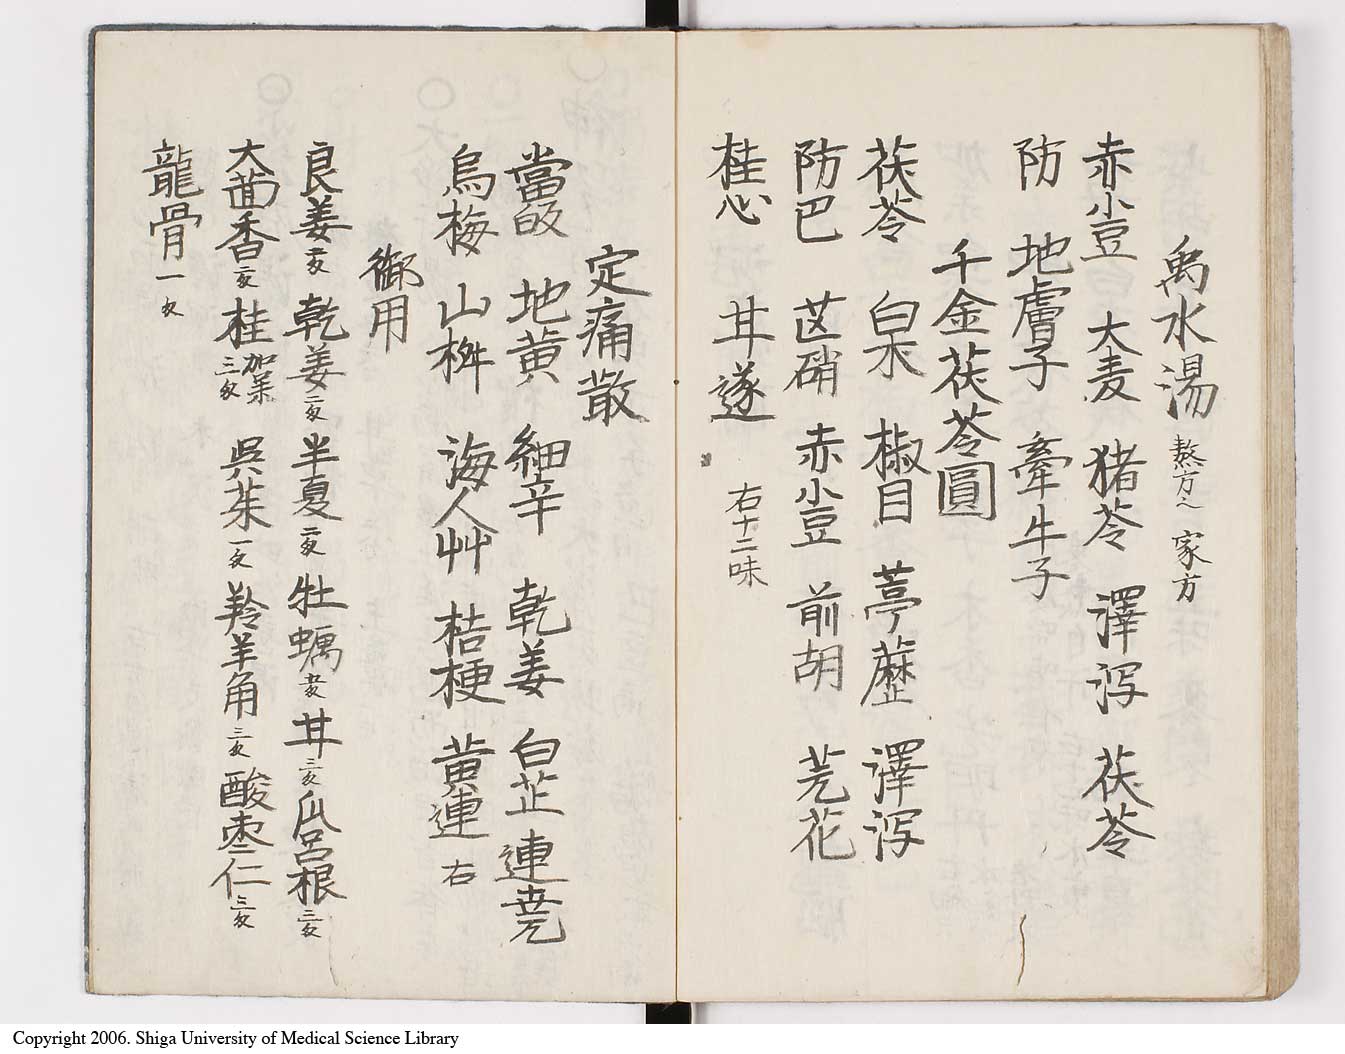 禹水湯 熬方〜 家方
赤小豆 大麦 猪苓 澤瀉 茯苓
防 地膚子 牽牛子
千金茯苓圓
茯苓 白朮 椒目 葶藶 澤瀉
防巴 芒硝 赤小豆 前胡 芫花
桂心 甘遂 右十二味
定痛散
當皈 地黄 細辛 乾姜 白芷 連堯
烏梅 山椒 海人艸 桔梗 黄連 右
御用
良姜 二匁 乾姜 二匁 半夏 二匁 牡蠣 甘 三匁 瓜呂根 三匁
大茴香 二匁 桂 三匁 呉茱 一匁 羚羊角 三匁 酸棗仁 三匁
龍骨 一匁
Copyright 2006. Shiga University of Medical Science Library